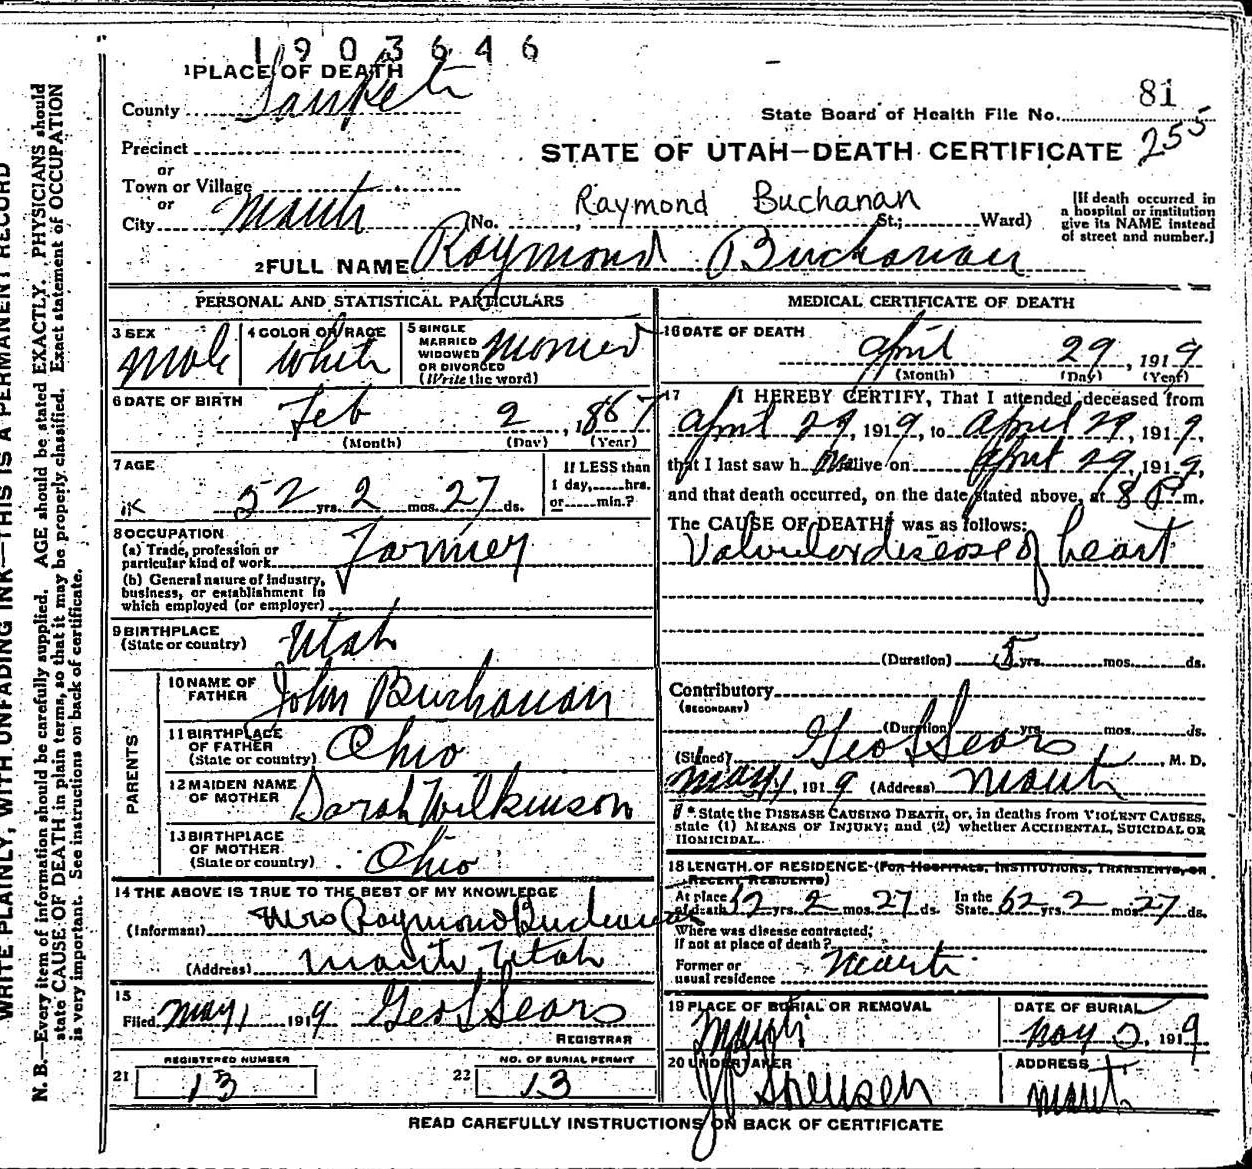 1903646
1 PLACE OF DEATH
County Sanpete
State Board of Health File No. 81
255
Precinct
STATE OF UTAH—DEATH CERTIFICATE
or
Town or Village
or
City Manti (No. , St.; Ward)
Raymond Buchanan
[If death occurred in
a hospital or institution
give its NAME instead
of street and number.]
2 FULL NAME Raymond Buchanan
PERSONAL AND STATISTICAL PARTICULARS
3 SEX
Male
4 COLOR OR RACE
White
5 SINGLE
MARRIED
WIDOWED
OR DIVORCED
(Write the word)
Married
6 DATE OF BIRTH
Feb 2, 1867
(Month) (Day) (Year)
7 AGE
52 yrs. 2 mos. 27 ds.
If LESS than
1 day,......hrs.
or......min.?
8 OCCUPATION
(a) Trade, profession or
particular kind of work Farmer
(b) General nature of industry,
business, or establishment in
which employed (or employer)
9 BIRTHPLACE
(State or country) Utah
PARENTS
10 NAME OF
FATHER John Buchanan
11 BIRTHPLACE
OF FATHER
(State or country) Ohio
12 MAIDEN NAME
OF MOTHER Sarah Wilkinson
13 BIRTHPLACE
OF MOTHER
(State or country) Ohio
14 THE ABOVE IS TRUE TO THE BEST OF MY KNOWLEDGE
(Informant) Mrs Raymond Buchanan
(Address) Manti, Utah
15
Filed May 1 1919 Geo L Sears
REGISTRAR
REGISTERED NUMBER
21 13
NO. OF BURIAL PERMIT
22 13
MEDICAL CERTIFICATE OF DEATH
16 DATE OF DEATH
April 29, 1919
(Month) (Day) (Year)
17 I HEREBY CERTIFY, That I attended deceased from
April 29, 1919, to April 29, 1919,
that I last saw h im alive on April 29, 1919,
and that death occurred, on the date stated above, at 8 P m.
The CAUSE OF DEATH* was as follows:
Valvular disease of heart
(Duration) 5 yrs. mos. ds.
Contributory
(SECONDARY)
(Duration) yrs. mos. ds.
(Signed) Geo L Sears, M. D.
May 1, 1919 (Address) Manti
* State the DISEASE CAUSING DEATH, or, in deaths from VIOLENT CAUSES,
state (1) MEANS OF INJURY; and (2) whether ACCIDENTAL, SUICIDAL OR
HOMICIDAL.
18 LENGTH OF RESIDENCE (FOR HOSPITALS, INSTITUTIONS, TRANSIENTS, OR
RECENT RESIDENTS)
At place
of death 52 yrs. 2 mos. 27 ds. In the
State 52 yrs. 2 mos. 27 ds.
Where was disease contracted,
if not at place of death?
Former or
usual residence Manti
19 PLACE OF BURIAL OR REMOVAL
Manti
DATE OF BURIAL
May 2, 1919
20 UNDERTAKER
ADDRESS
Manti
READ CAREFULLY INSTRUCTIONS ON BACK OF CERTIFICATE
WRITE PLAINLY, WITH UNFADING INK—THIS IS A PERMANENT RECORD
N. B.—Every item of information should be carefully supplied. AGE should be stated EXACTLY. PHYSICIANS should
state CAUSE OF DEATH in plain terms, so that it may be properly classified. Exact statement of OCCUPATION
is very important. See instructions on back of certificate.